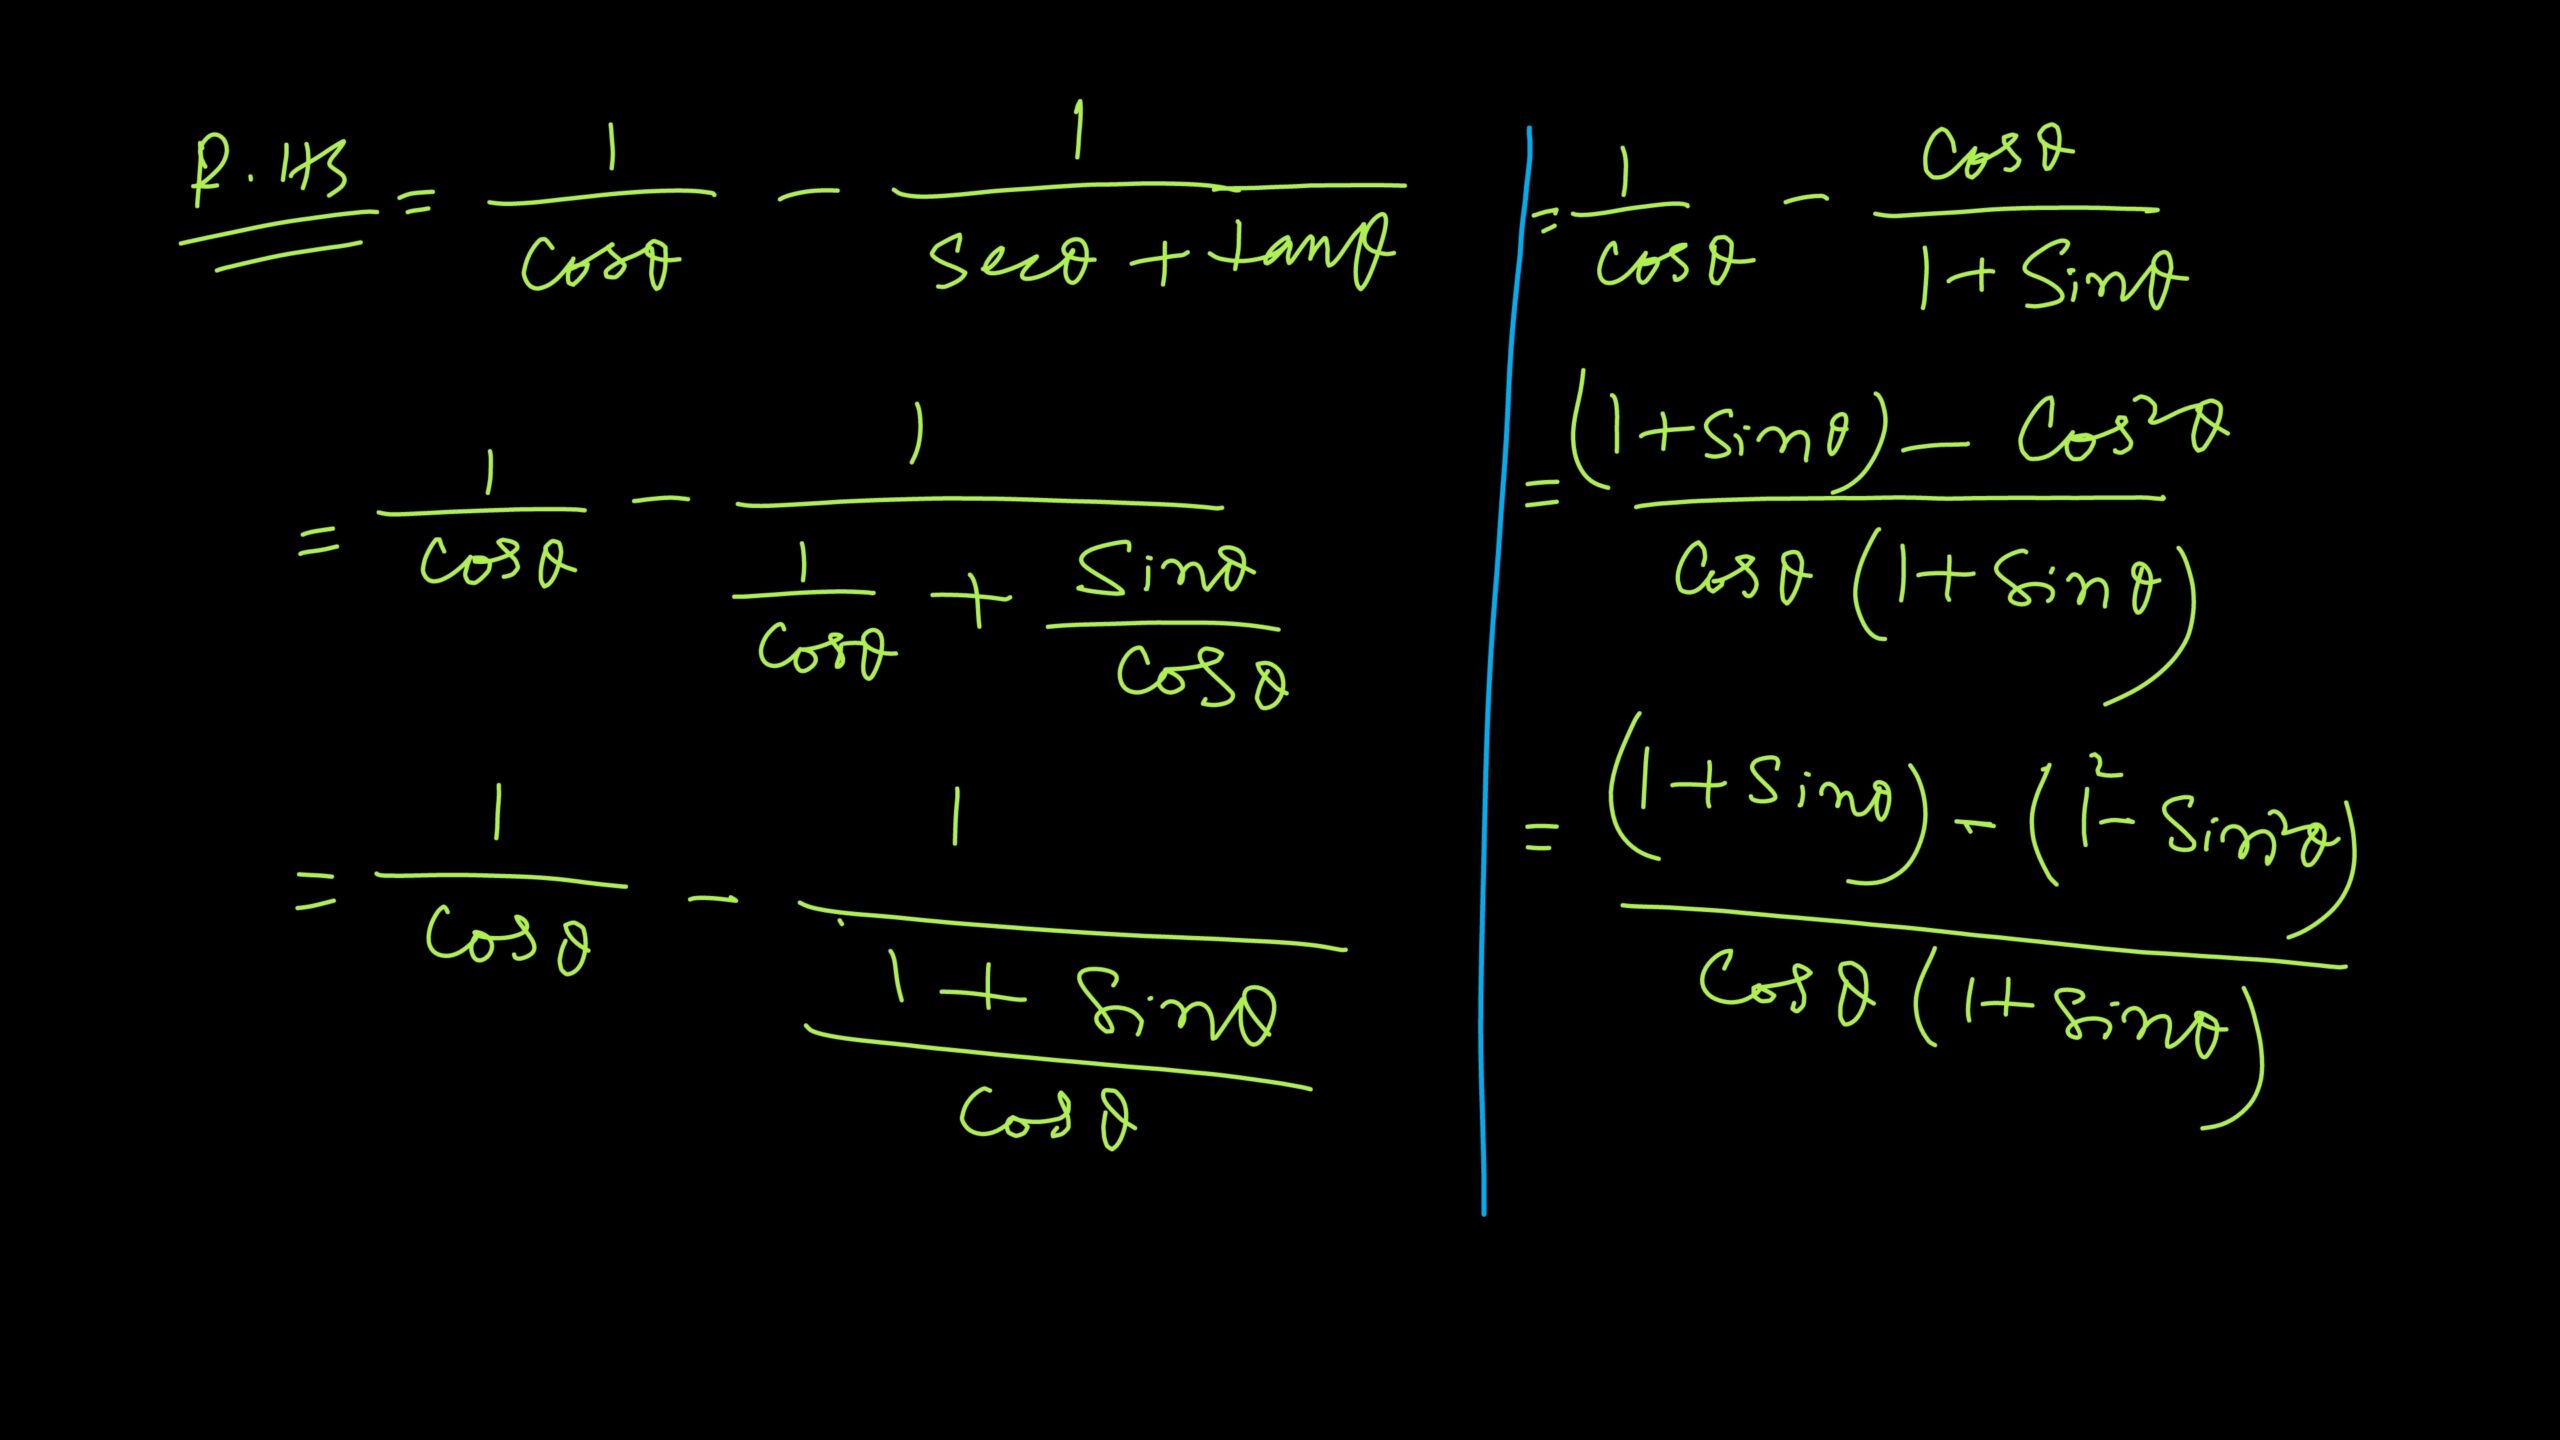 R.HS = 1/cosθ - 1/(secθ + tanθ)
= 1/cosθ - 1/(1/cosθ + sinθ/cosθ)
= 1/cosθ - 1/((1 + sinθ)/cosθ)
= 1/cosθ - cosθ/(1 + sinθ)
= ((1 + sinθ) - cos²θ)/(cosθ (1 + sinθ))
= ((1 + sinθ) - (1² - sin²θ))/(cosθ (1 + sinθ))